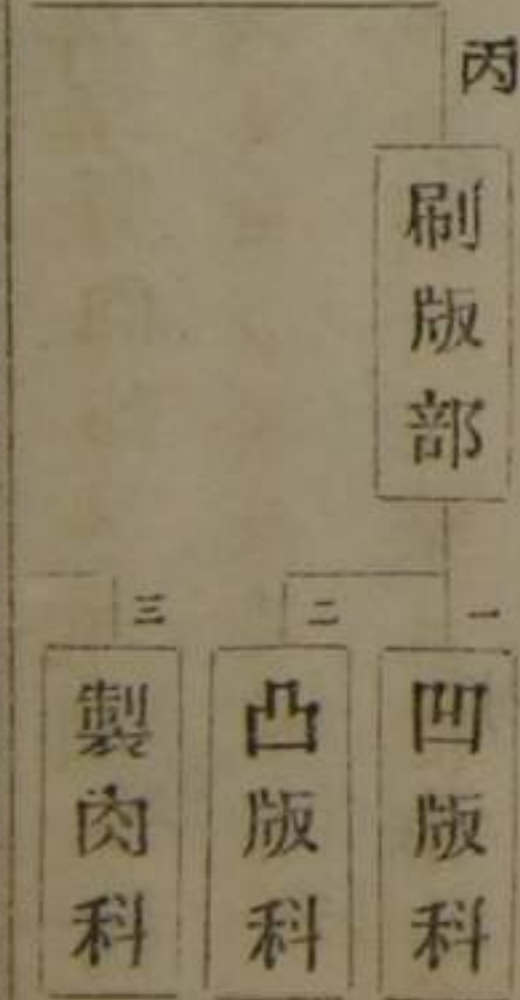 丙
刷版部
一
凹版科
二
凸版科
三
製肉科